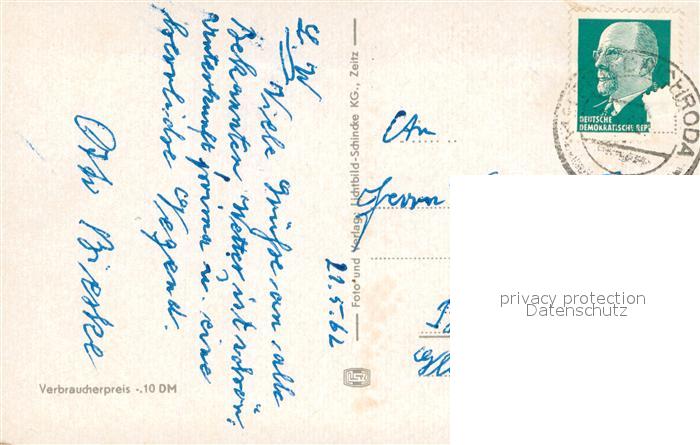 L. W
Viele Grüße an alle
Bekannten Wetter ist schön,
Unterkunft prima u. eine
herrliche Gegend.
Otto
21.5.62
Verbraucherpreis -.10 DM
Foto und Verlag: Lichtbild-Schincke KG., Zeitz
DEUTSCHE
DEMOKRATISCHE REP
CHRODA
An
Herrn
privacy protection
Datenschutz